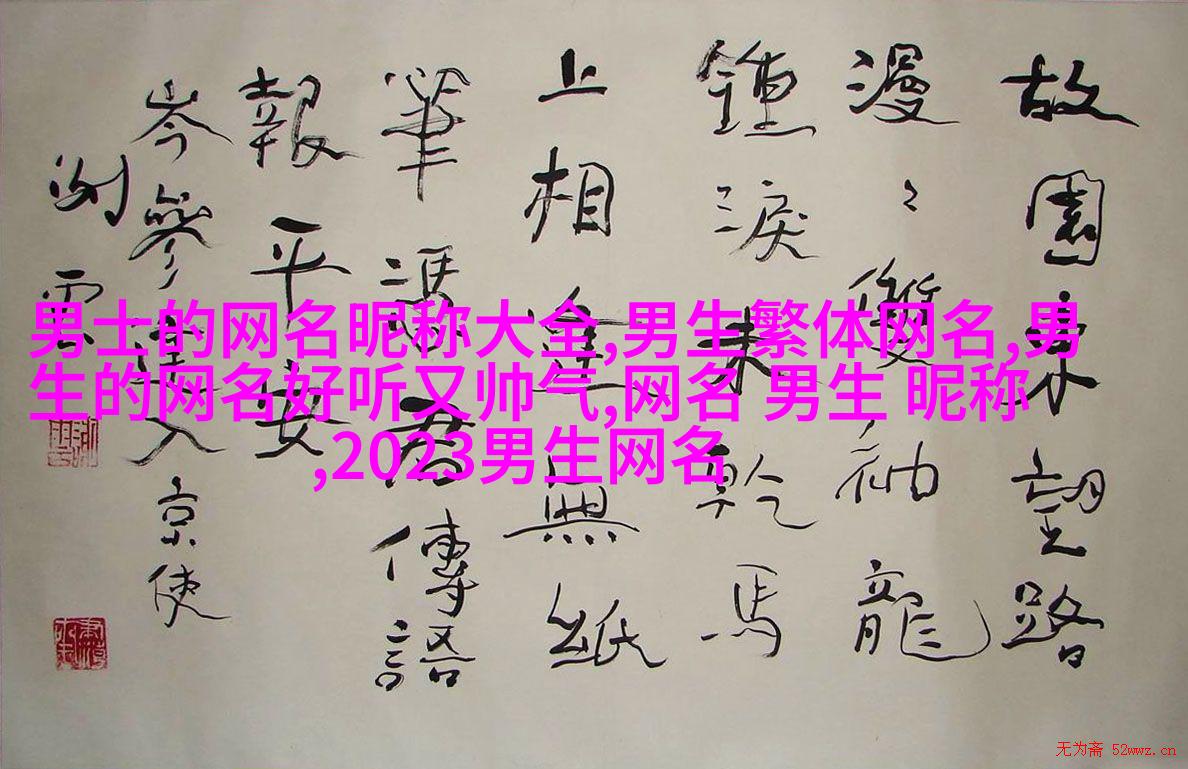 故園東望路
漫〻雙袖龍
鍾淚未乾馬
上相逢無紙
筆馮君傳語
報平安
岑參逢入京使
男士的网名昵称大全,男生繁体网名,男
生的网名好听又帅气,网名 男生 昵称
,2023男生网名
无为斋 52wwz.cn